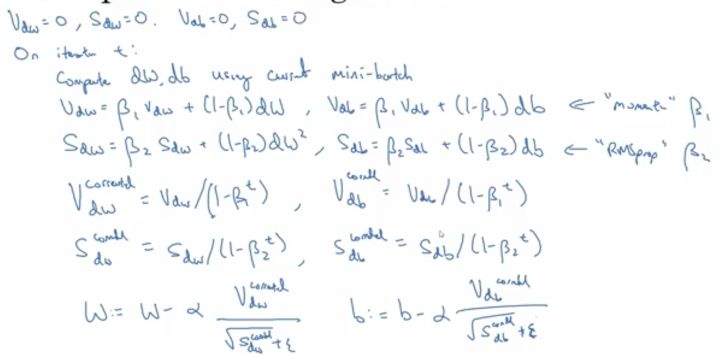 V_dw = 0, S_dw = 0. V_db = 0, S_db = 0
On iteration t:
Compute dW, db using current mini-batch
V_dw = β₁ V_dw + (1-β₁) dW , V_db = β₁ V_db + (1-β₁) db ← "momentum" β₁
S_dw = β₂ S_dw + (1-β₂) dW² , S_db = β₂ S_db + (1-β₂) db ← "RMSprop" β₂
V_dw^corrected = V_dw / (1-β₁^t) , V_db^corrected = V_db / (1-β₁^t)
S_dw^corrected = S_dw / (1-β₂^t) , S_db^corrected = S_db / (1-β₂^t)
W := W - α V_dw^corrected / (√S_dw^corrected + ε) b := b - α V_db^corrected / (√S_db^corrected + ε)